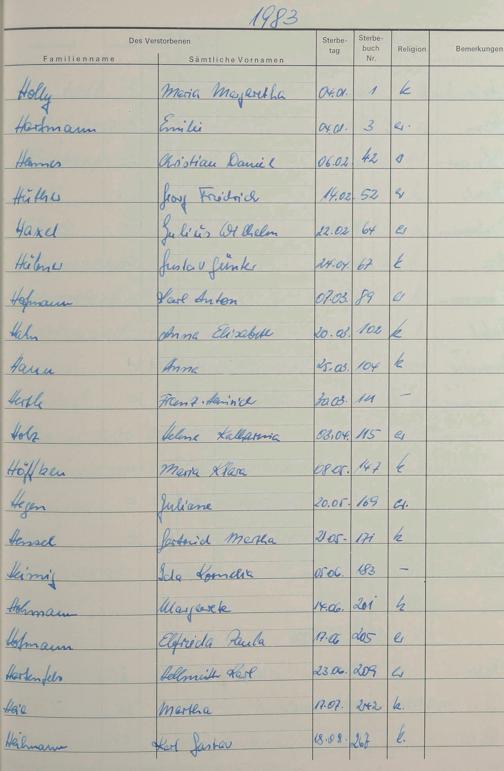 1983
Des Verstorbenen Sterbe- Sterbe-
tag buch Religion Bemerkungen
Familienname Sämtliche Vornamen Nr.
Holly Maria Margaretha 04.01. 1 k
Hartmann Emilie 04.01. 3 ev.
Hannes Christian Daniel 06.02. 42
Hüther Georg Friedrich 14.02. 52 ev
Haxel Julius Wilhelm 22.02 64 ev
Hübner Gustav Günter 67 k
Hofmann Karl Anton 07.03. 89 ev
Hahn Anna Elisabeth 20.03. 102 k
Hann Anna 25.03. 104 k
Hertle Franz-Heinrich 30.03. 111 –
Holz Helene Katharina 03.04. 115 ev
Höffken Maria Klara 08.05. 147 k
Hegen Juliane 20.05. 169 ev.
Hensel Gertrud Martha 21.05. 171 k
Heimig Ida Kornelia 05.06. 183 –
Hohmann Margarete 14.06. 201 k
Hofmann Elfrieda Paula 17.06 205 ev
Hartenfels Hellmuth Karl 23.06. 209 ev
Martha 17.07. 242 k.
Heilmann Karl Gustav 18.08. 267 k.